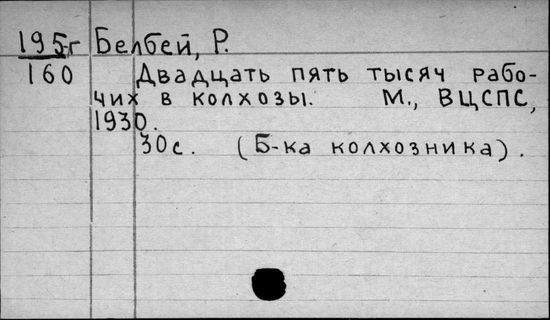 195-г Белбей, Р.
160 Двадцать пять тысяч рабо-
чих в колхозы. М., ВЦСПС,
1930.
30с. (Б-ка колхозника).